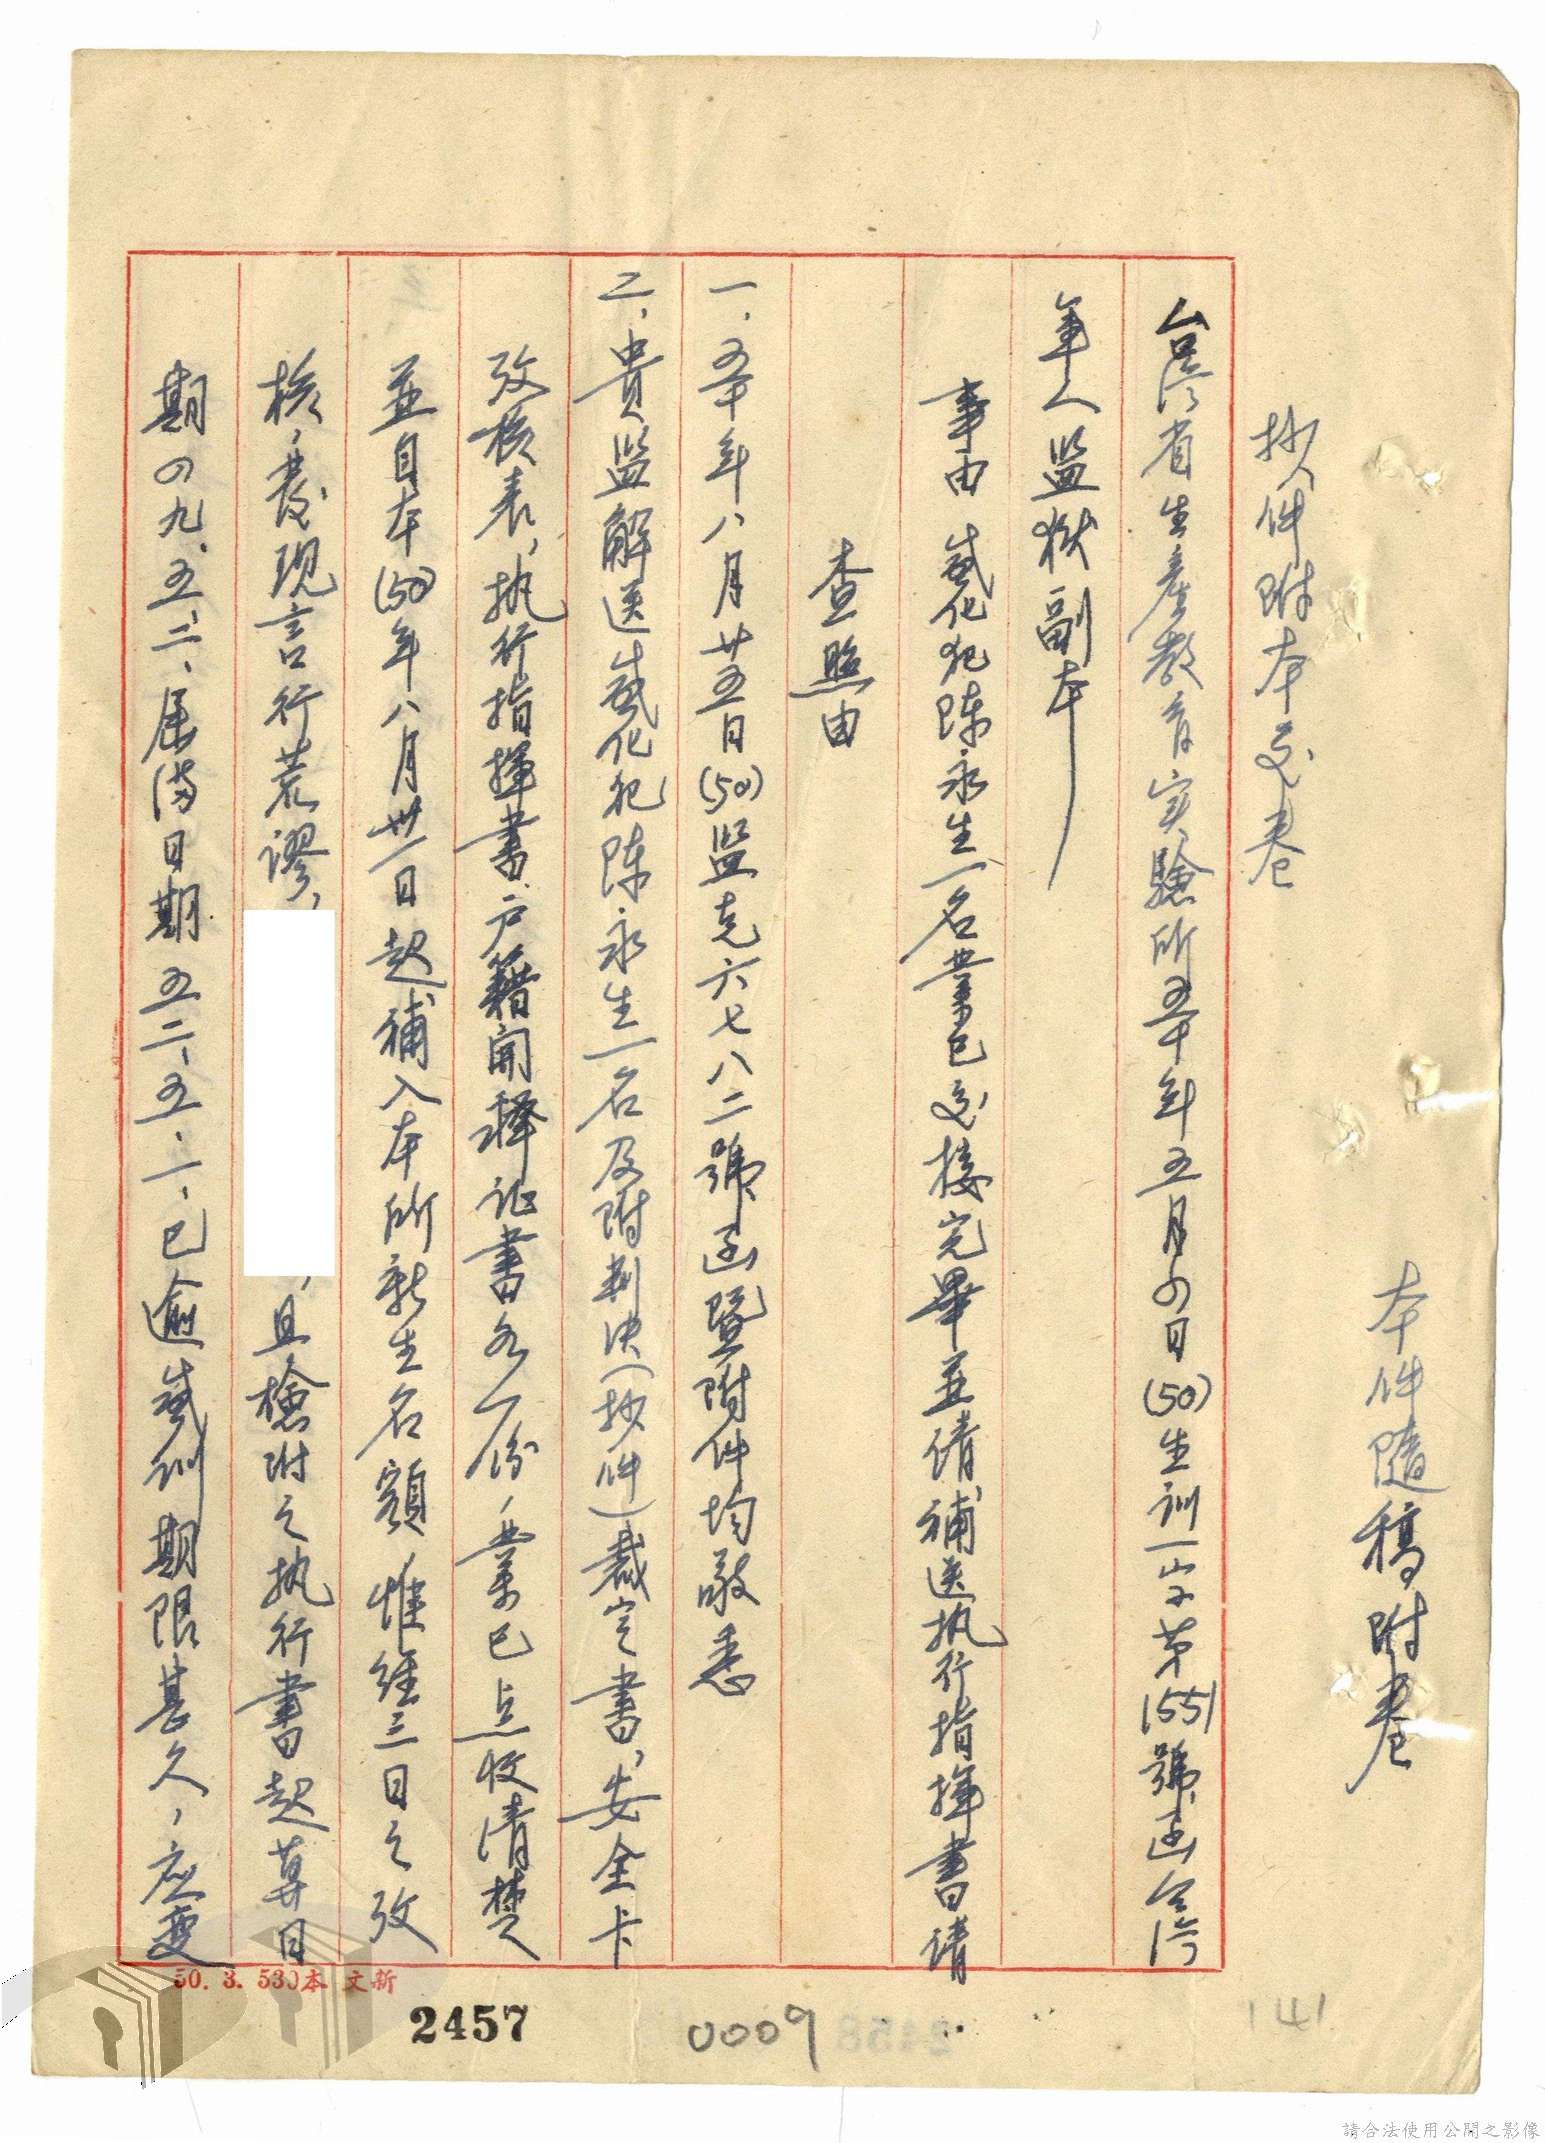 本件隨稿附卷
抄件附本交卷
台湾省生產教育实驗所五十年五月四日(50)生训一字第1551號函台湾
軍人监狱副本
事由 感化犯陈永生一名業已交接完畢並请補送执行指揮書请
查照由
一、五十年八月廿五日(50)监克六七八二號函暨附件均敬悉
二、貴监解送感化犯陈永生一名及附判决(抄件)裁定書、安全卡
攷核表、执行指揮書、户籍開释证書各一份，業已点收清楚
並自本(50)年八月卅一日起補入本所新生名額，惟经三日之攷
核，發现言行荒謬，
，且檢附之执行書起算日
期四九、五、二、届满日期五二、五、一、已逾感训期限甚久，应变
50. 3. 530本 文新
2457
0009
141
請合法使用公開之影像